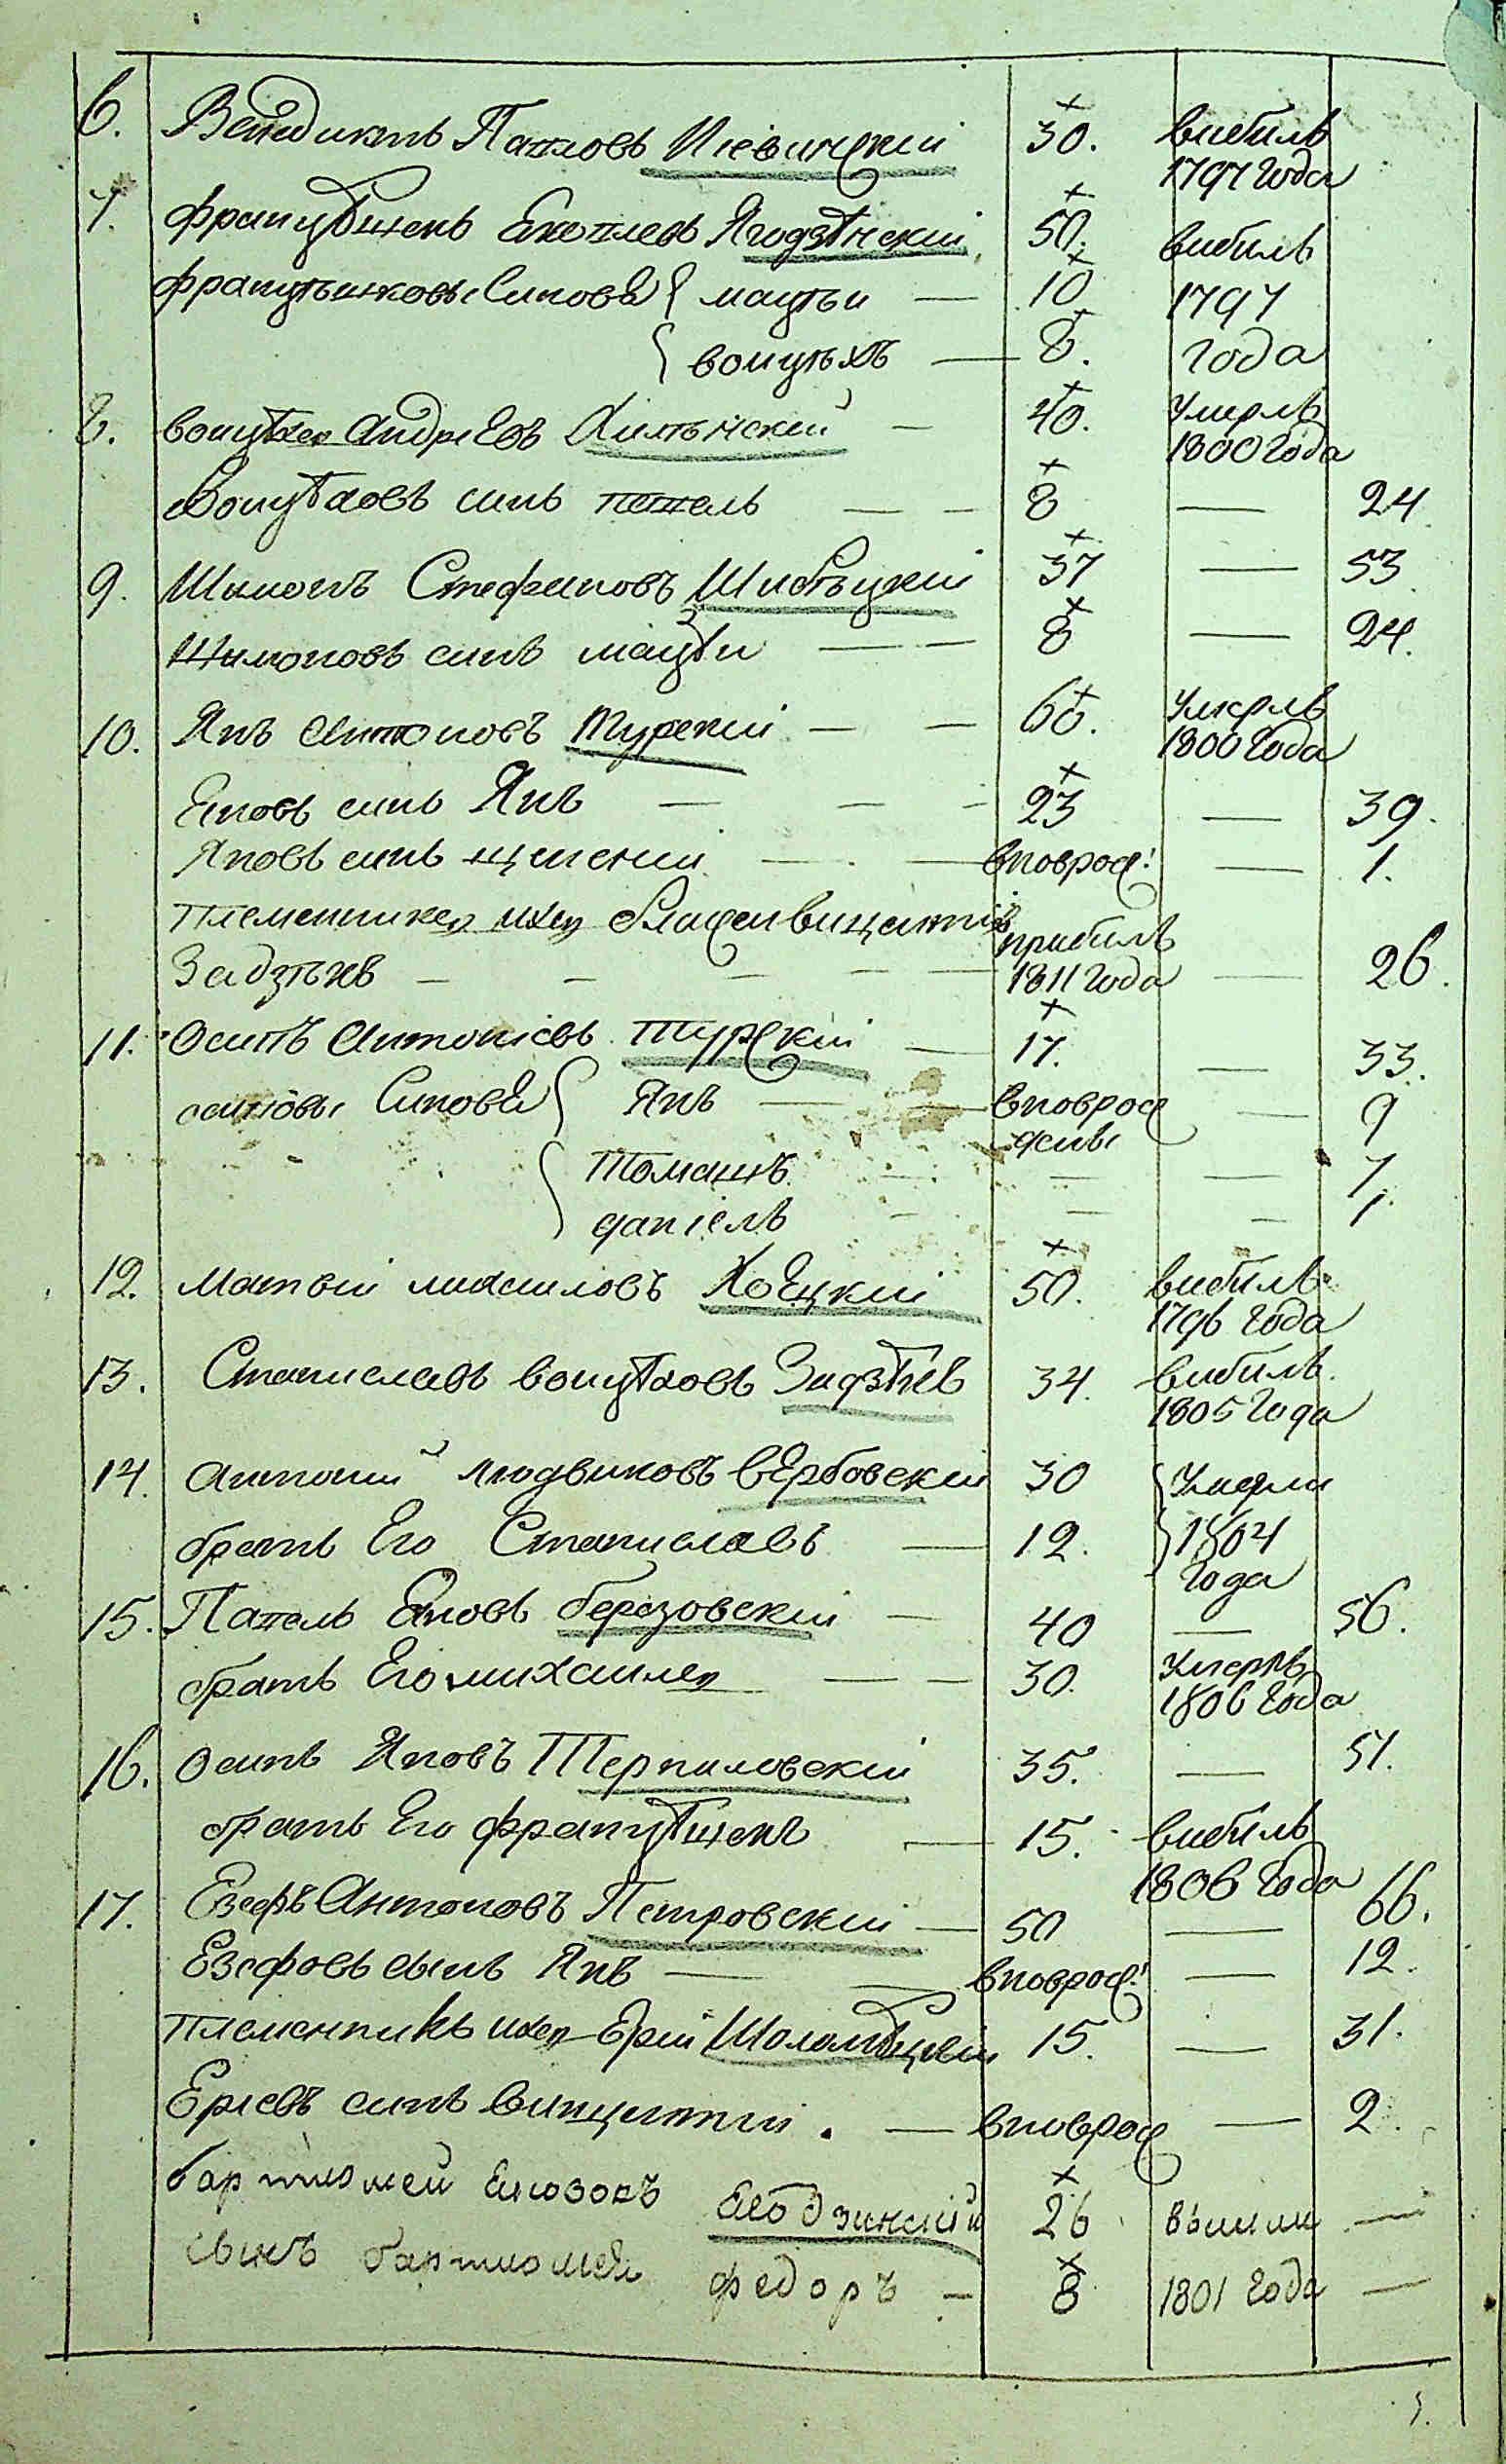 6. Венедиктъ Павловъ Кіевинскій 30. вибилъ
1797 года
7. францѣшекъ Якотлевъ Ягодзѣнскій 50. вибилъ
францѣшковы Синовя { мацѣи — 10 1797
{ воицѣхъ — 8. года
8. воицѣхъ Андрѣевъ Хилтьнскій — 40. Умерлъ
1800 года
Воицѣховъ синъ павелъ — — 8 — 24
9. Шимонъ Стефановъ Шибѣцкій 37 — 53
Шимоновъ синъ мацѣи — — 8 — 24.
10. Янъ Антоновъ Турскій — — 60. Умерлъ
1800 года
Яновъ синъ Янъ — — — 23 — 39.
Яновъ синъ щепений — — вноврож: — 1.
Племенникъ ихъ
прибилъ
Задзѣкъ — — — — — 1811 года — 26.
11. Осипъ Антоніевъ Турскій — 17. — 33.
осиповы Синовя { Янъ — — вноврож — 9
дени
{ Томашъ — — — 7
даніелъ — — — 1.
12. Матвій михаиловъ Хоецкій 50. вибилъ
1796 года
13. Станиславъ воицѣховъ Задзѣкъ 34. вибилъ.
1805 года
14. Антоний людвиковъ вербовскій 30 { Умерли
братъ Его Станиславъ — 12. } 1804
года
15. Павелъ Яновъ березовскій — 40 — 56.
братъ Его михаилъ — — 30. Умерлъ
1806 года
16. Осипъ Яновъ Терпиловскій 35. — 51.
братъ Его францѣшекъ — 15. вибилъ
1806 года
17. Езефъ Антоновъ Петровскій — 50 — 66.
Езефовъ сынъ Янъ — — вноврож: — 12.
Племенникъ ихъ Ерій Шоломѣцкій 15. — 31.
Еріевъ синъ винцентій. — вноврож — 2.
бартломей 26 —
сынъ бартломея федоръ — 8 1801 года —